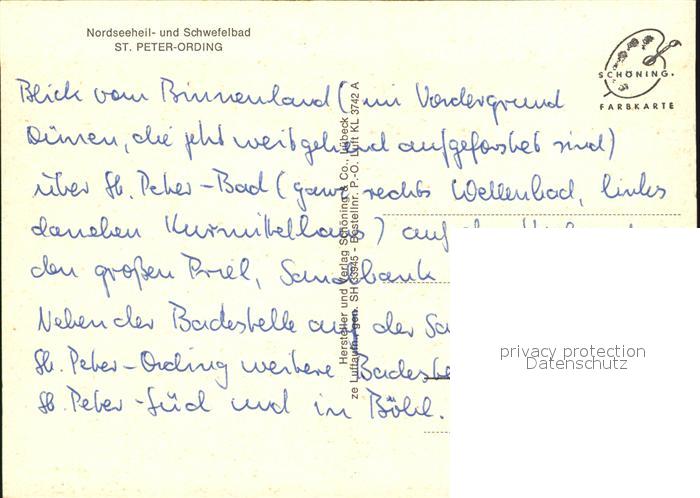 Nordseeheil- und Schwefelbad
ST. PETER-ORDING
SCHÖNING
FARBKARTE
Blick vom Binnenland (im Vordergrund
Dünen, die jetzt weitgehend aufgeforstet sind)
über St. Peter-Bad (ganz rechts Wellenbad, links
daneben Kurmittelhaus) auf
den großen Priel, Sandbank
Neben der Badestelle auf der
St. Peter-Ording weitere Badeste
St. Peter-Süd und in Böhl.
Hersteller und Verlag Schöning & Co., Lübeck
SH 33945 - Bestellnr. P.-O. Luft KL 3742 A
privacy protection
Datenschutz